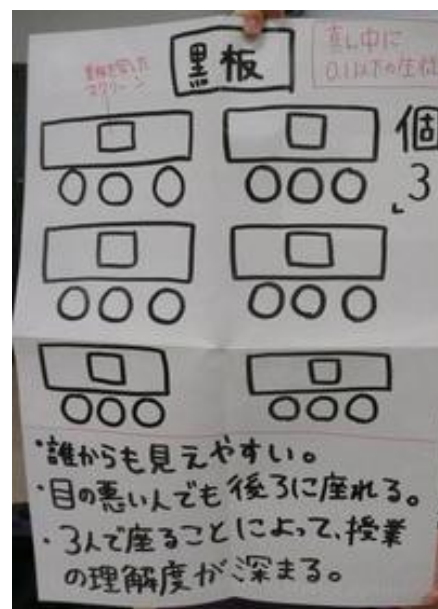 黒板
真ん中に
0.1以下の生徒
黒板を写した
スクリーン
個
3
・誰からも見えやすい。
・目の悪い人でも後ろに座れる。
・3人で座ることによって、授業
の理解度が深まる。